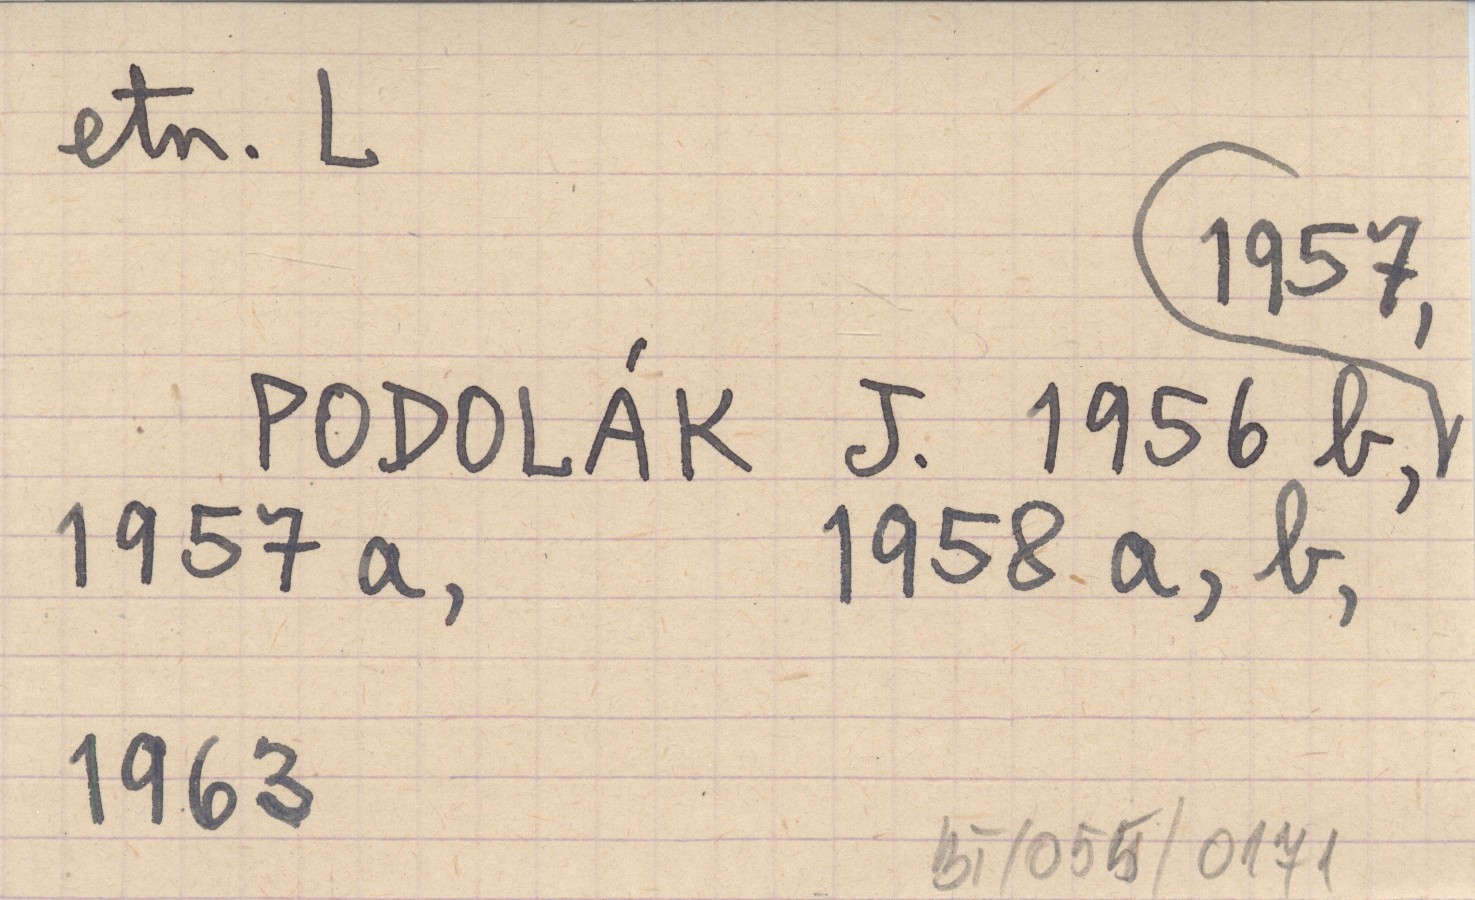 etn. L
1957,
PODOLÁK J. 1956 b,
1957 a, 1958 a, b,
1963
BI/055/0171